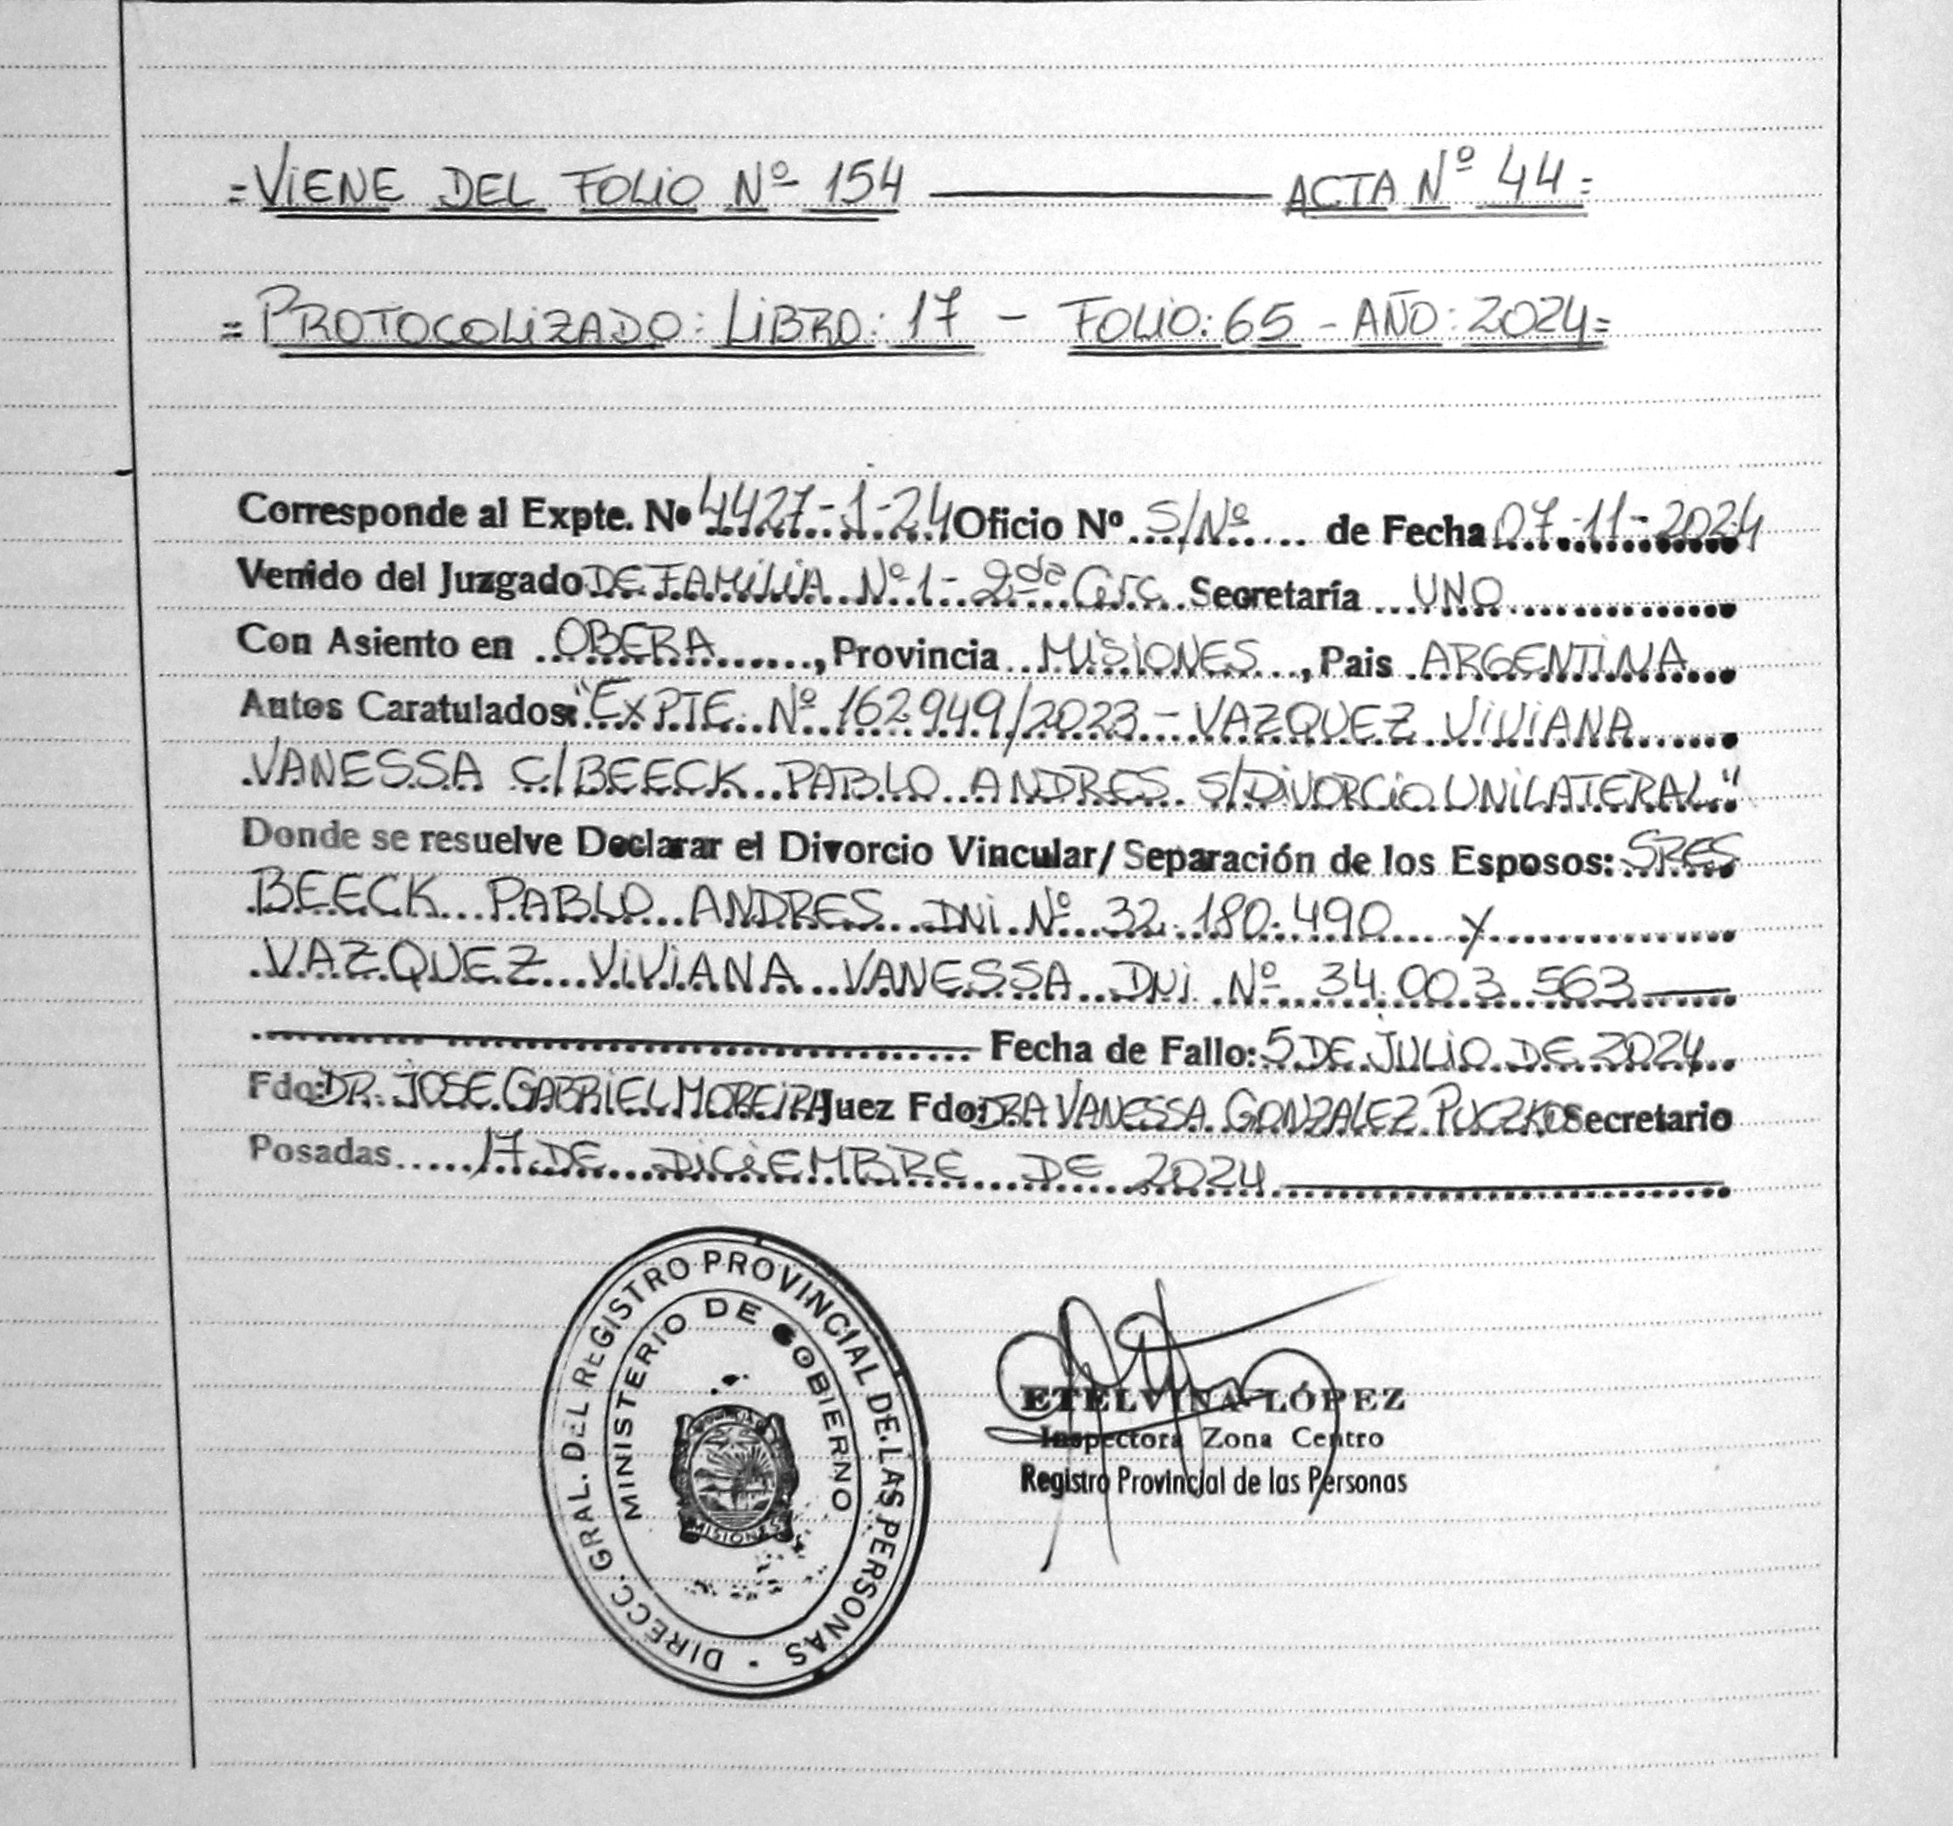 =VIENE DEL FOLIO Nº 154 ——— ACTA Nº 44=
=PROTOCOLIZADO: LIBRO: 17 - FOLIO: 65 - AÑO: 2024=
Corresponde al Expte. Nº 4427-1-24 Oficio Nº S/Nº de Fecha 07-11-2024
Venido del Juzgado DE FAMILIA Nº 1 - 2da Circ. Secretaría UNO
Con Asiento en OBERA, Provincia MISIONES, Pais ARGENTINA
Autos Caratulados: "EXPTE. Nº 162949/2023 - VAZQUEZ VIVIANA
VANESSA C/ BEECK PABLO ANDRES S/ DIVORCIO UNILATERAL"
Donde se resuelve Declarar el Divorcio Vincular/ Separación de los Esposos: SRES
BEECK PABLO ANDRES DNI Nº 32.180.490 y
VAZQUEZ VIVIANA VANESSA DNI Nº 34.003.563
Fecha de Fallo: 5 DE JULIO DE 2024
Fdo: DR. JOSE GABRIEL MOREIRA Juez Fdo: DRA VANESSA GONZALEZ PUCZKO Secretario
Posadas 17 DE DICIEMBRE DE 2024
DIRECC. GRAL. DEL REGISTRO PROVINCIAL DE LAS PERSONAS
MINISTERIO DE GOBIERNO
MISIONES
ETELVINA LÓPEZ
Inspectora Zona Centro
Registro Provincial de las Personas